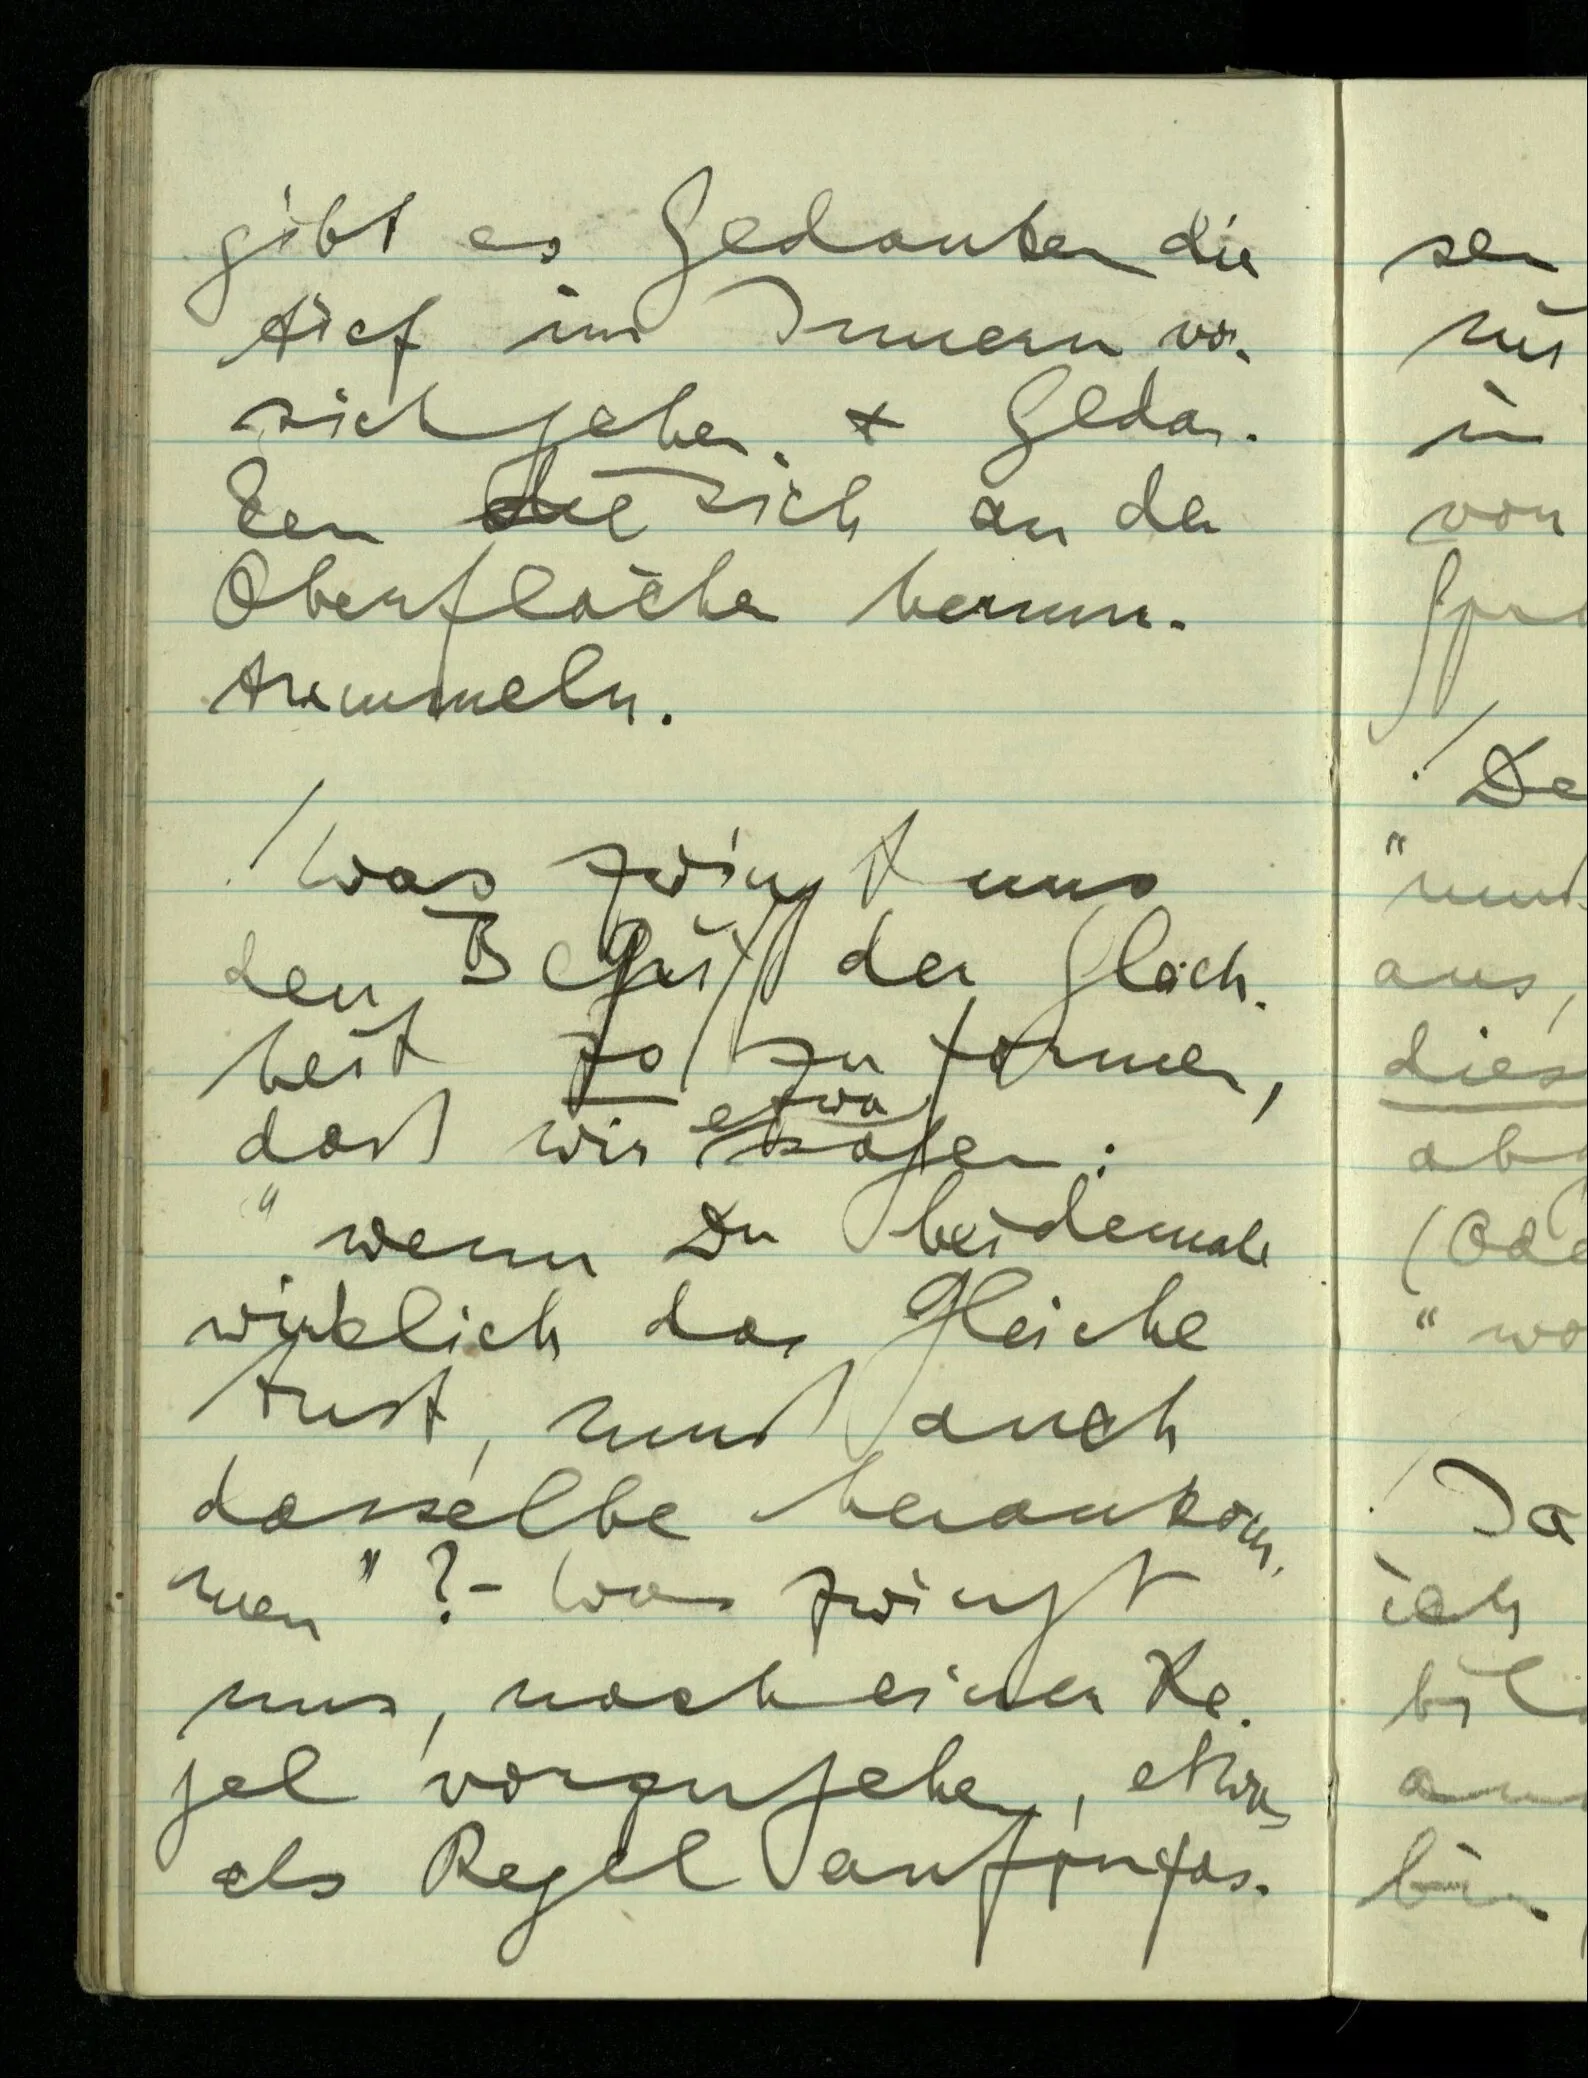 gibt es Gedanken die
tief im Innern vor
sichgehen, & Gedan-
ken die sich an der
Oberfläche herum-
tummeln.
/ Was zwingt uns
den Begriff der Gleich-
heit so zu formen,
daß wir etwa sagen:
"wenn Du beidemale
wirklich das Gleiche
tust, muß auch
dasselbe herauskom-
men"? – Was zwingt
uns, nach einer Re-
gel vorzugehen, etwas
als Regel aufzufas-
sen
in
von
/ De
"
aus,
dies
(Ode
"
/ Ja
ich
bin